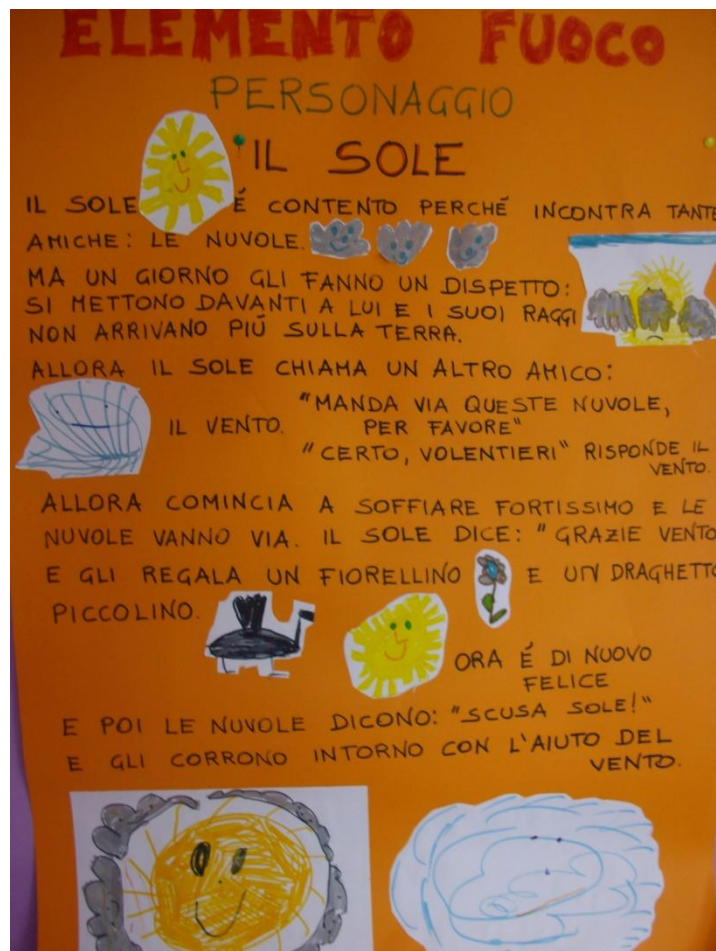 ELEMENTO FUOCO
PERSONAGGIO
IL SOLE
IL SOLE É CONTENTO PERCHÉ INCONTRA TANTE
AMICHE: LE NUVOLE.
MA UN GIORNO GLI FANNO UN DISPETTO:
SI METTONO DAVANTI A LUI E I SUOI RAGGI
NON ARRIVANO PIÚ SULLA TERRA.
ALLORA IL SOLE CHIAMA UN ALTRO AMICO:
IL VENTO. "MANDA VIA QUESTE NUVOLE,
PER FAVORE"
"CERTO, VOLENTIERI" RISPONDE IL
VENTO.
ALLORA COMINCIA A SOFFIARE FORTISSIMO E LE
NUVOLE VANNO VIA. IL SOLE DICE: "GRAZIE VENTO
E GLI REGALA UN FIORELLINO E UN DRAGHETTO
PICCOLINO.
ORA É DI NUOVO
FELICE
E POI LE NUVOLE DICONO: "SCUSA SOLE!"
E GLI CORRONO INTORNO CON L'AIUTO DEL
VENTO.